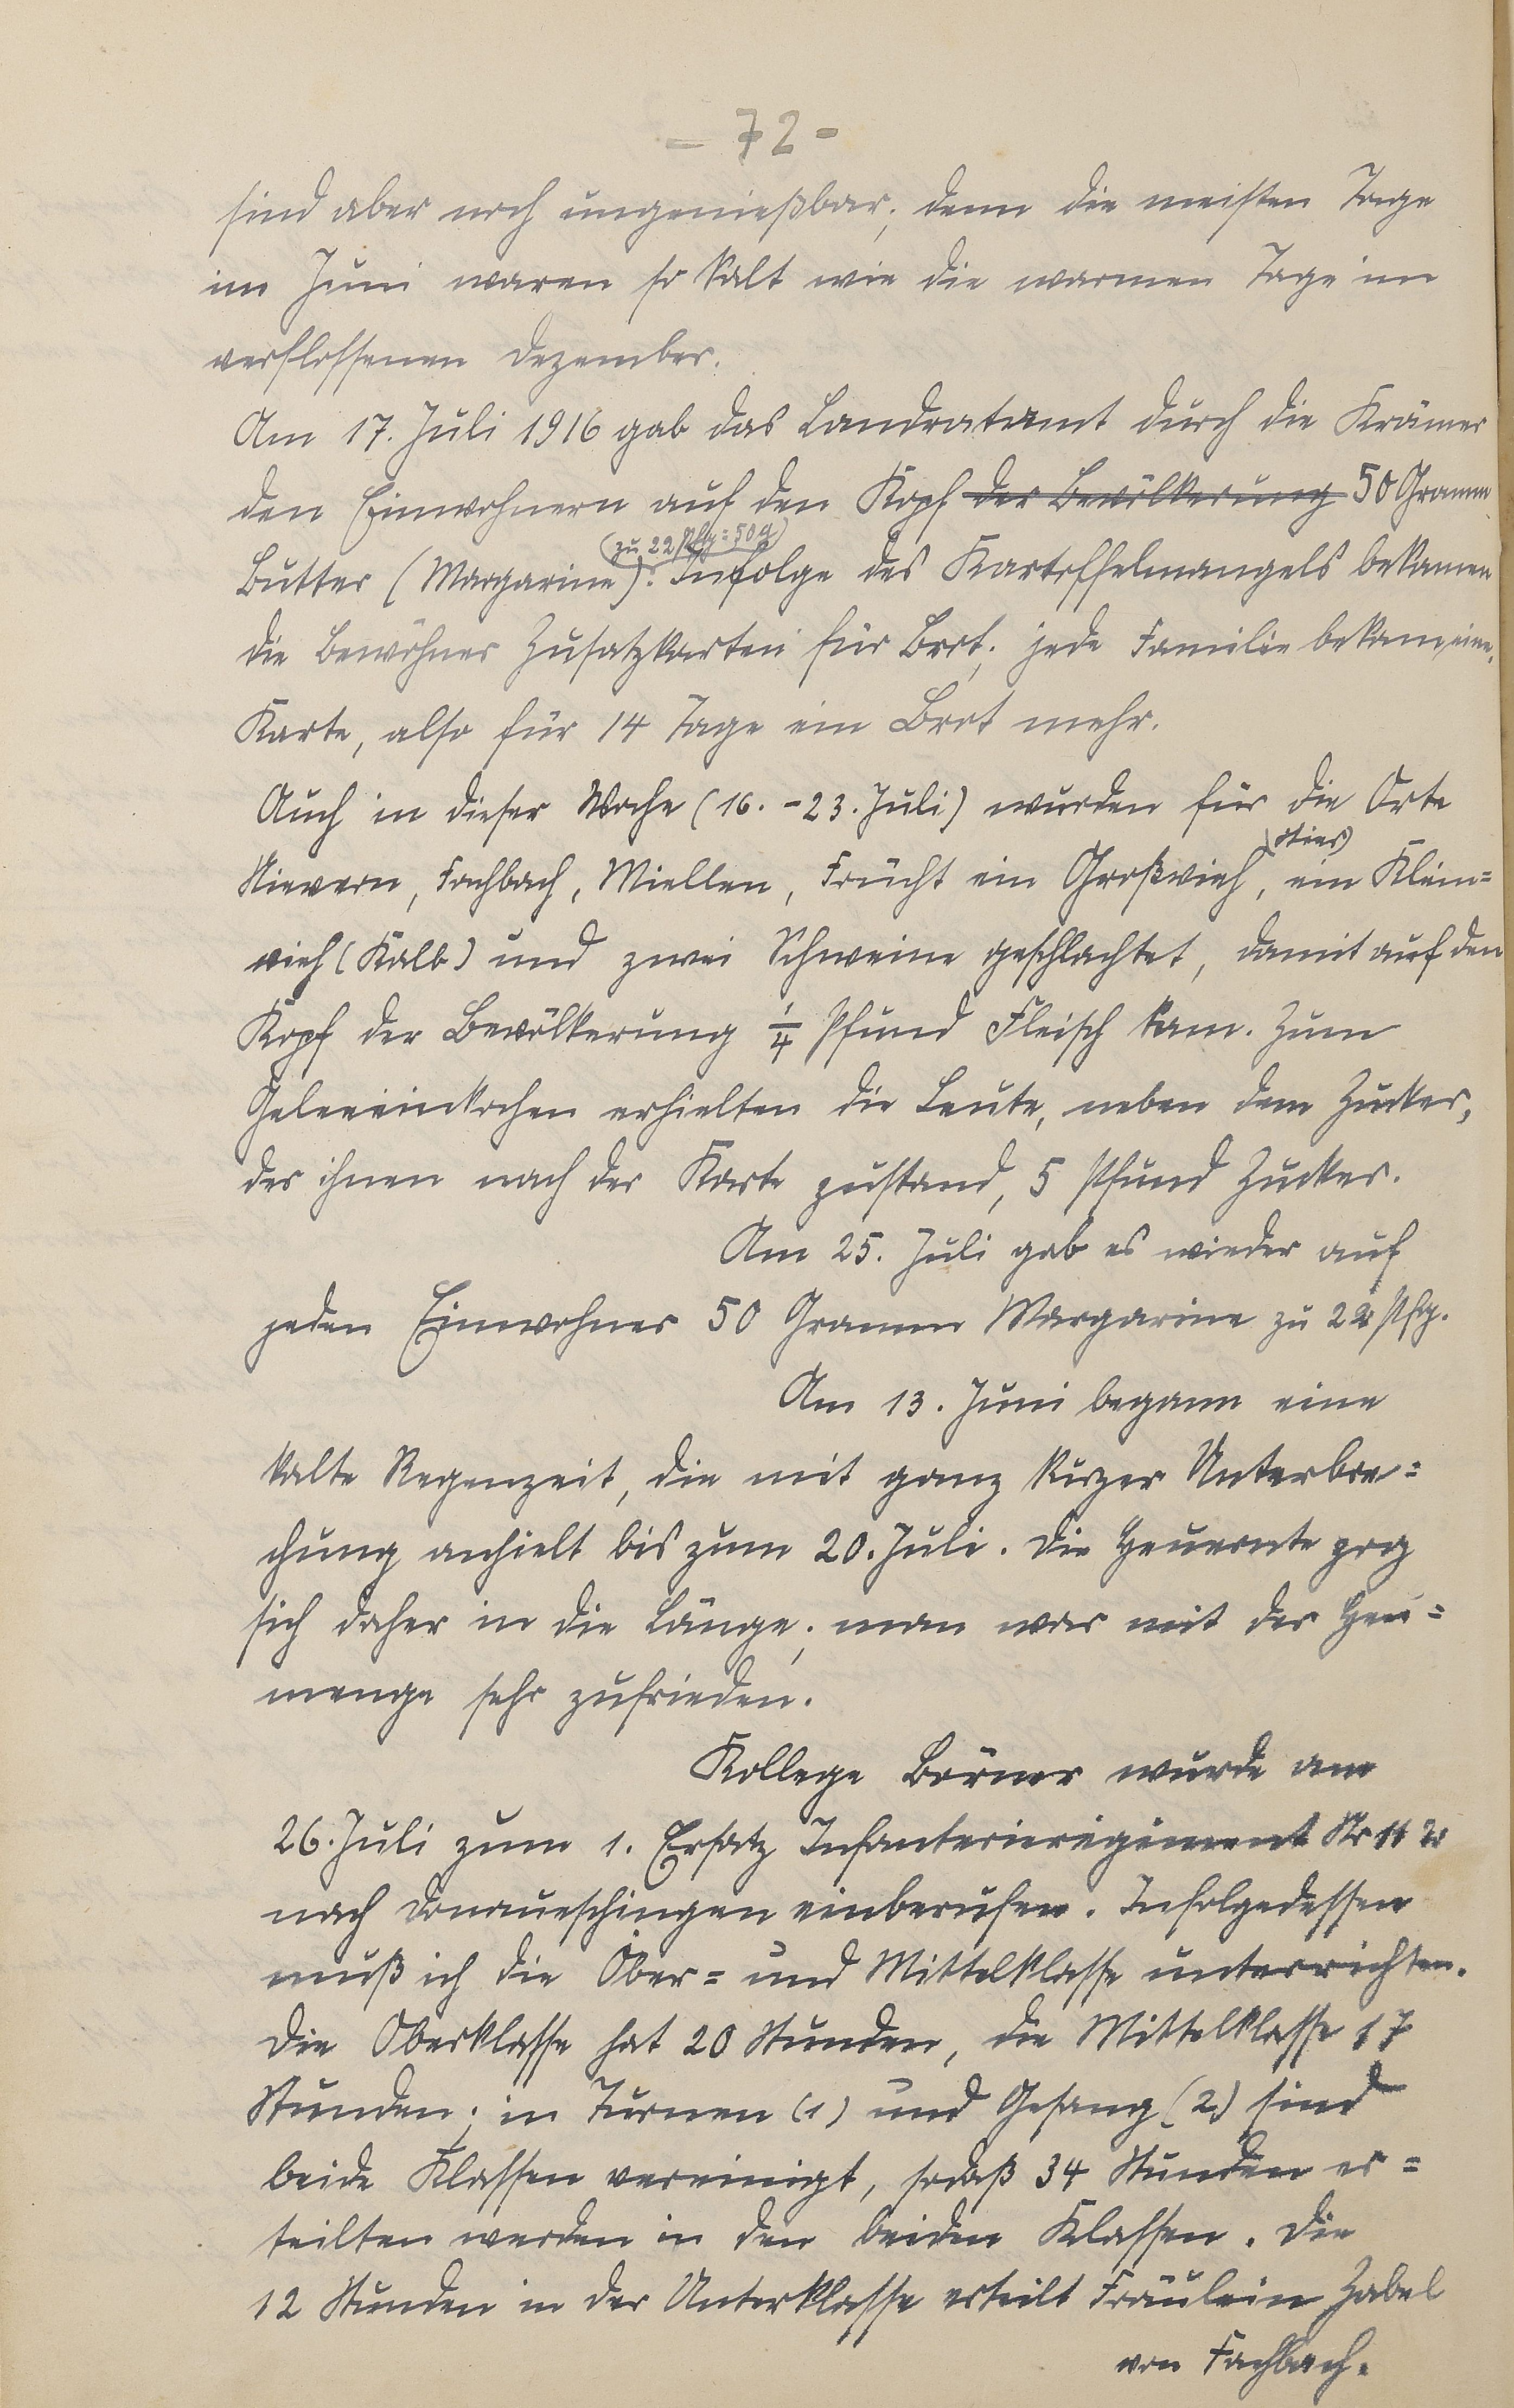 - 72 -
sind aber noch ungenießbar; denn die meisten Tage
im Juni waren so kalt wie die warmen Tage im
verflossenen Dezember.
Am 17. Juli 1916 gab das Landratamt durch die Krämer
den Einwohnern auf den Kopf der Bevölkerung 50 Gramm
(zu 22 Pfg = 50 g)
Butter (Margarine). Infolge des Kartoffelmangels bekamen
die Bewohner Zusatzkarten für Brot; jede Familie bekam eine
Karte, also für 14 Tage ein Brot mehr.
Auch in dieser Woche (16. - 23. Juli) wurden für die Orte
Nievern, Fachbach, Miellen, Frücht ein Großvieh, ein Klein=
vieh (Kalb) und zwei Schweine geschlachtet, damit auf den
Kopf der Bevölkerung 1/4 Pfund Fleisch kam. Zum
Geleeeinkochen erhielten die Leute, neben dem Zucker,
der ihnen nach der Karte zustand, 5 Pfund Zucker.
Am 25. Juli gab es wieder auf
jeden Einwohner 50 Gramm Margarine zu 22 Pfg.
Am 13. Juni begann eine
kalte Regenzeit, die mit ganz kurzer Unterbre=
chung anhielt bis zum 20. Juli. Die Heuernte zog
sich daher in die Länge; man war mit der Heu=
menge sehr zufrieden.
Kollege Börner wurde am
26. Juli zum 1. Ersatz Infanterieregiment Nr
nach Donaueschingen einberufen. Infolgedessen
muß ich die Ober= und Mittelklasse unterrichten.
Die Oberklasse hat 20 Stunden, die Mittelklasse 17
Stunden; in Turnen (1) und Gesang (2) sind
beide Klassen vereinigt, sodaß 34 Stunden er=
teilten werden in den beiden Klassen. Die
12 Stunden in der Unterklasse erteilt Fräulein Zabel
von Fachbach.